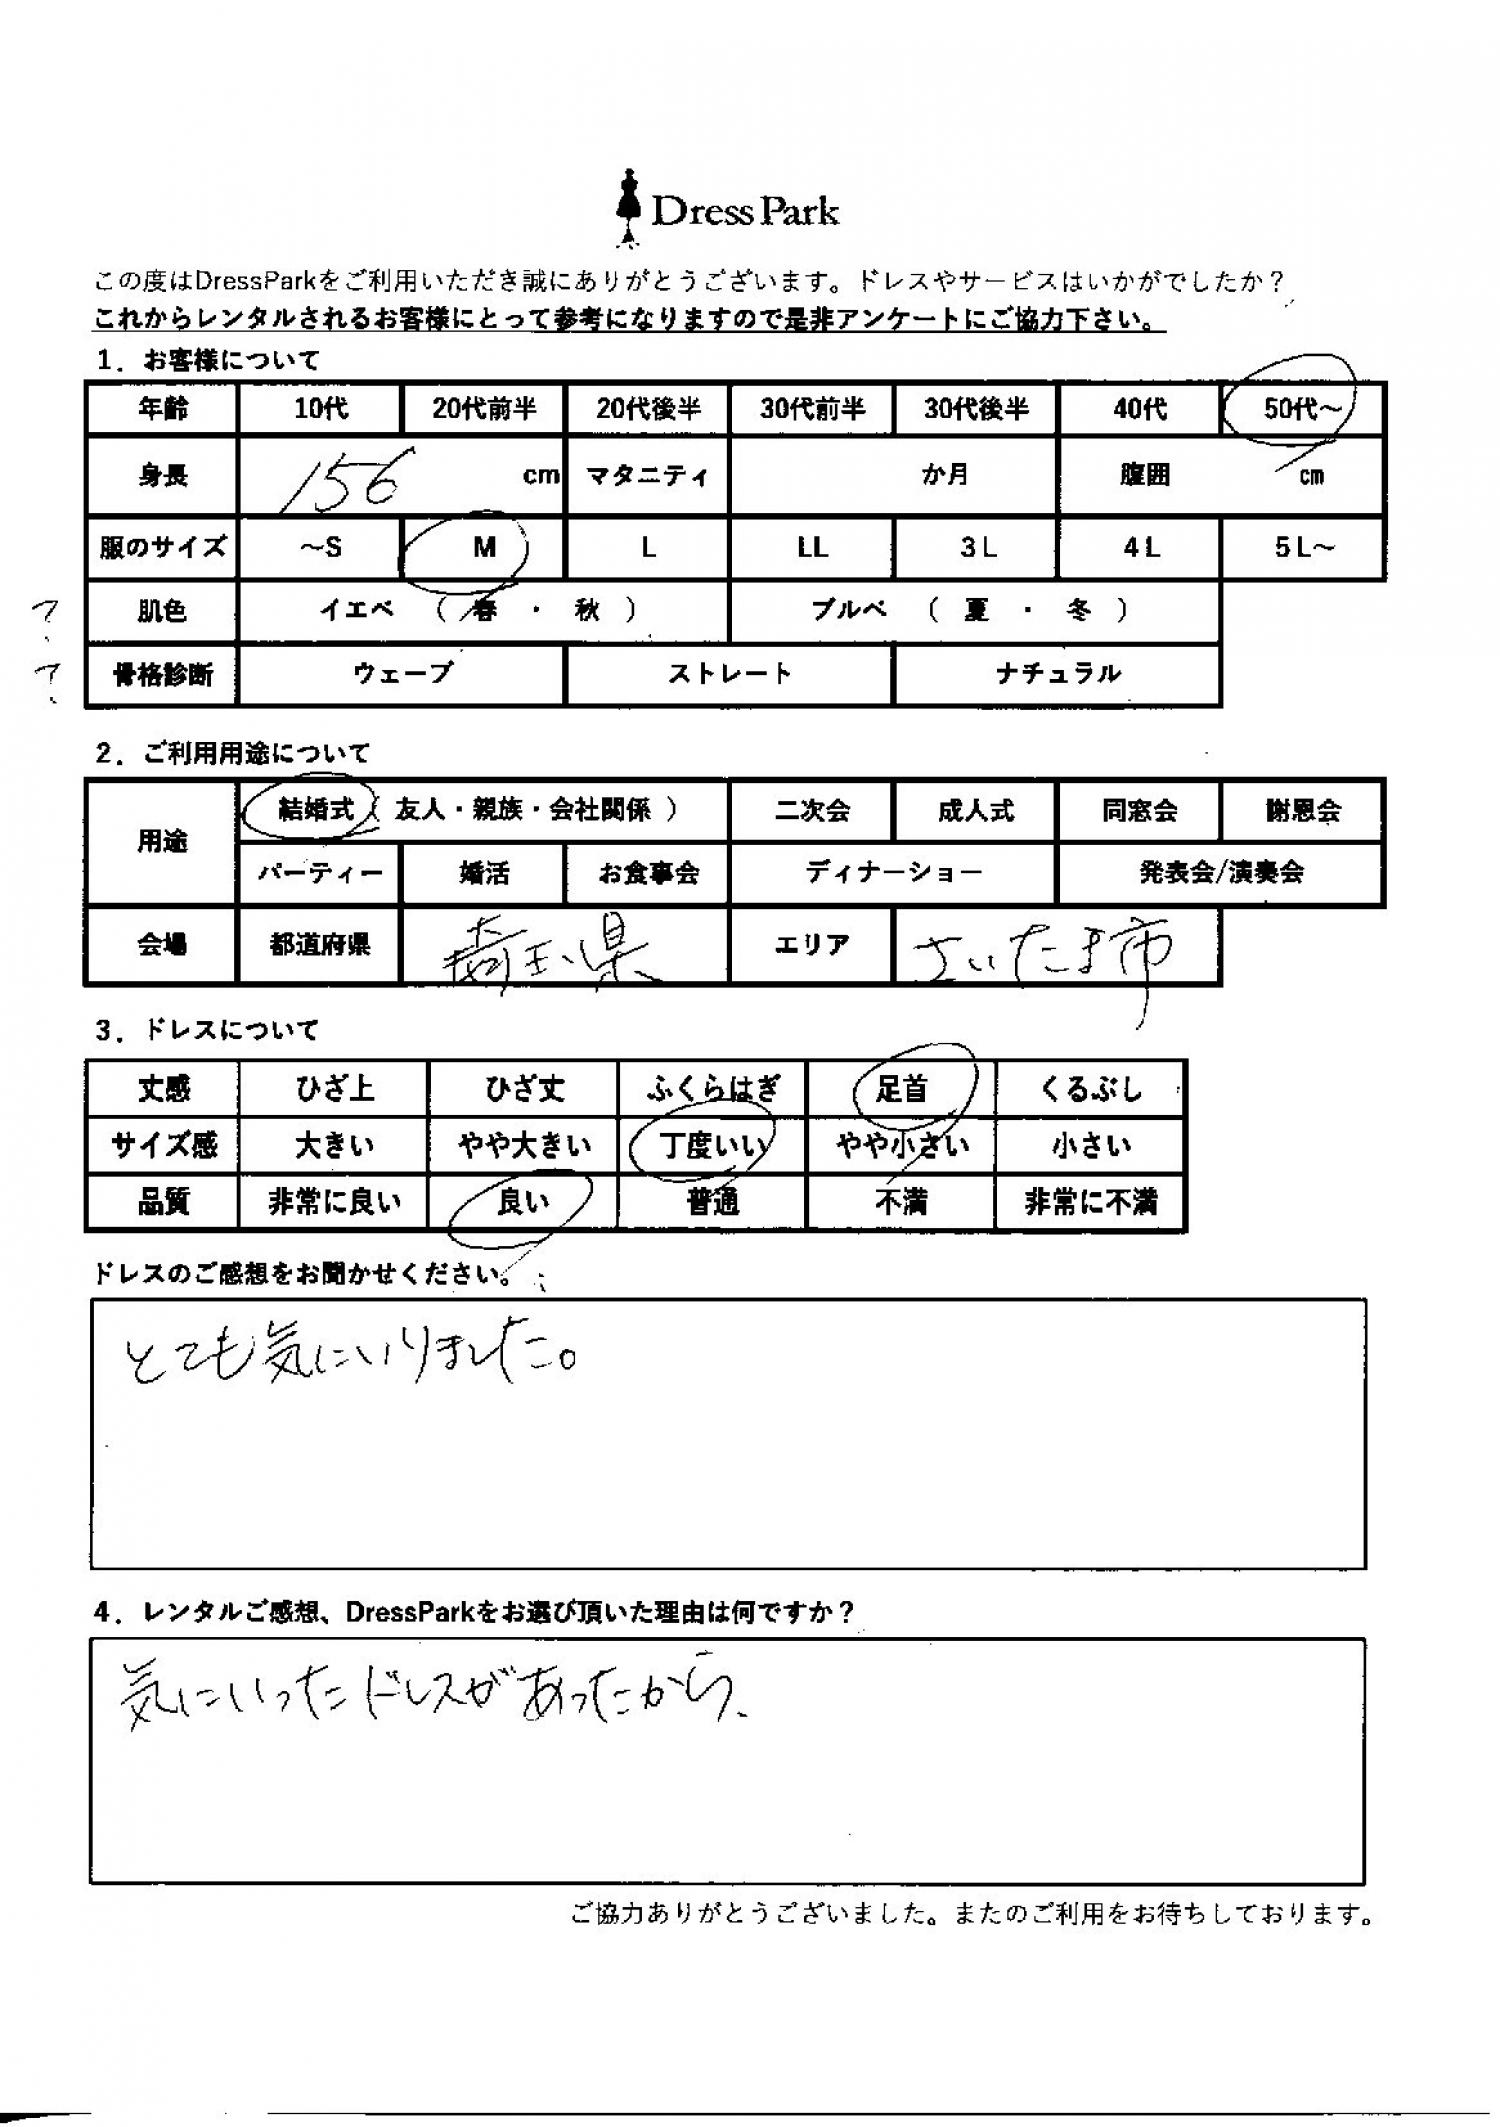 DressPark
この度はDressParkをご利用いただき誠にありがとうございます。ドレスやサービスはいかがでしたか？
これからレンタルされるお客様にとって参考になりますので是非アンケートにご協力下さい。
1．お客様について
年齢 10代 20代前半 20代後半 30代前半 30代後半 40代 50代～
身長 156 cm マタニティ か月 腹囲 cm
服のサイズ ～S M L LL 3L 4L 5L～
? 肌色 イエベ （ 春 ・ 秋 ） ブルベ （ 夏 ・ 冬 ）
? 骨格診断 ウェーブ ストレート ナチュラル
2．ご利用用途について
用途 結婚式（ 友人・親族・会社関係 ） 二次会 成人式 同窓会 謝恩会
パーティー 婚活 お食事会 ディナーショー 発表会/演奏会
会場 都道府県 埼玉県 エリア さいたま市
3．ドレスについて
丈感 ひざ上 ひざ丈 ふくらはぎ 足首 くるぶし
サイズ感 大きい やや大きい 丁度いい やや小さい 小さい
品質 非常に良い 良い 普通 不満 非常に不満
ドレスのご感想をお聞かせください。
とても気にいりました。
4．レンタルご感想、DressParkをお選び頂いた理由は何ですか？
気にいったドレスがあったから、
ご協力ありがとうございました。またのご利用をお待ちしております。